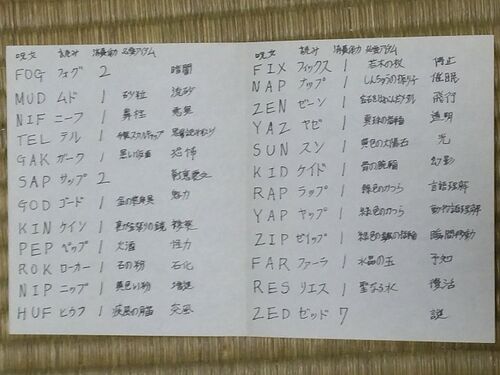 呪文 読み 消費体力 必要アイテム
FOG フォグ 2 暗闇
MUD ムド 1 砂粒 流砂
NIF ニーフ 1 鼻栓 悪臭
TEL テル 1 スカルキャップ
GAK ガーク 1 黒い仮面 恐怖
SAP サップ 2
GOD ゴード 1 金の装身具 魅力
KIN ケイン 1
PEP ペップ 1 火酒 怪力
ROK ローカー 1 石の粉 石化
NIP ニップ 1 黄色い粉 増速
HUF ヒウフ 1 疾風の角笛 突風
呪文 読み 消費体力 必要アイテム
FIX フィックス 1 若木の枝 停止
NAP ナップ 1 しんちゅうの振り子 催眠
ZEN ゼーン 1 飛行
YAZ ヤゼ 1 真珠の指輪 透明
SUN スン 1 黄色の太陽石 光
KID ケイド 1 骨の腕輪 幻影
RAP ラップ 1 緑色のかつら 言語理解
YAP ヤップ 1 緑色のかつら 動物語理解
ZIP ゼイップ 1 緑色の鋼の指輪 瞬間移動
FAR ファーラ 1 水晶の玉 予知
RES リエス 1 聖なる水 復活
ZED ゼッド 7 謎